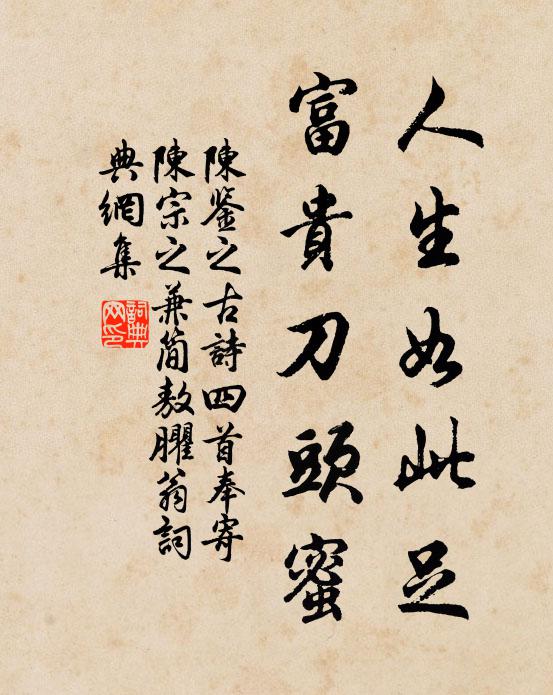 人生如此足
富貴刀頭蜜
陳鉴之古詩四首奉寄
陳宗之兼簡敖臞翁詞
典網集
詞典網印